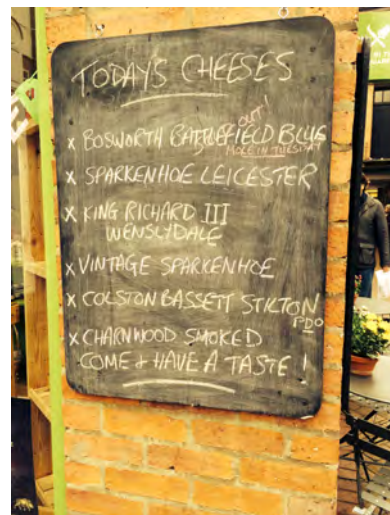 TODAY'S CHEESES
x BOSWORTH BATTLEFIELD BLUE
OUT!
MORE IN TUESDAY
x SPARKENHOE LEICESTER
x KING RICHARD III
WENSLYDALE
x VINTAGE SPARKENHOE
x COLSTON BASSETT STILTON
PDO
x CHARNWOOD SMOKED
COME + HAVE A TASTE !